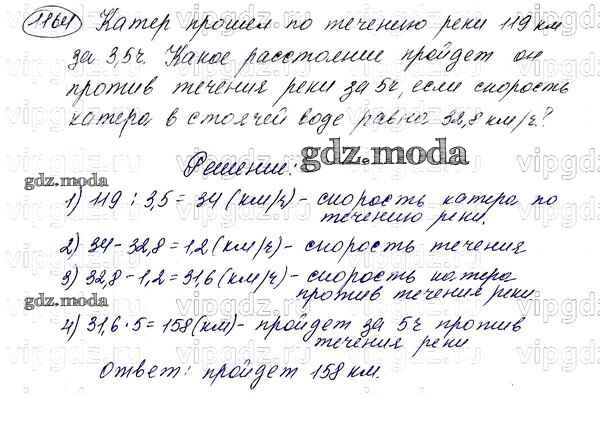 1164 Катер прошел по течению реки 119 км
за 3,5ч. Какое расстояние пройдет он
против течения реки за 5ч, если скорость
катера в стоячей воде равна 32,8 км/ч?
Решение:
gdz.moda
gdz.moda
1) 119 : 3,5 = 34 (км/ч) - скорость катера по
течению реки.
2) 34 - 32,8 = 1,2 (км/ч) - скорость течения
3) 32,8 - 1,2 = 31,6 (км/ч) - скорость катера
против течения реки
gdz.moda
4) 31,6 · 5 = 158 (км) - пройдет за 5ч против
течения реки
Ответ: пройдет 158 км.